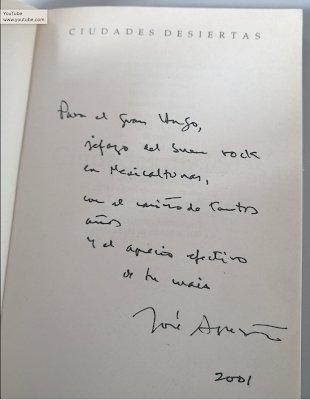 YouTube
www.youtube.com
CIUDADES DESIERTAS
Para el gran Hugo,
jefazo del buen rock
en Mexicalturas,
con el cariño de tantos
años
y el aprecio efectivo
de tu
José Agustín
2001